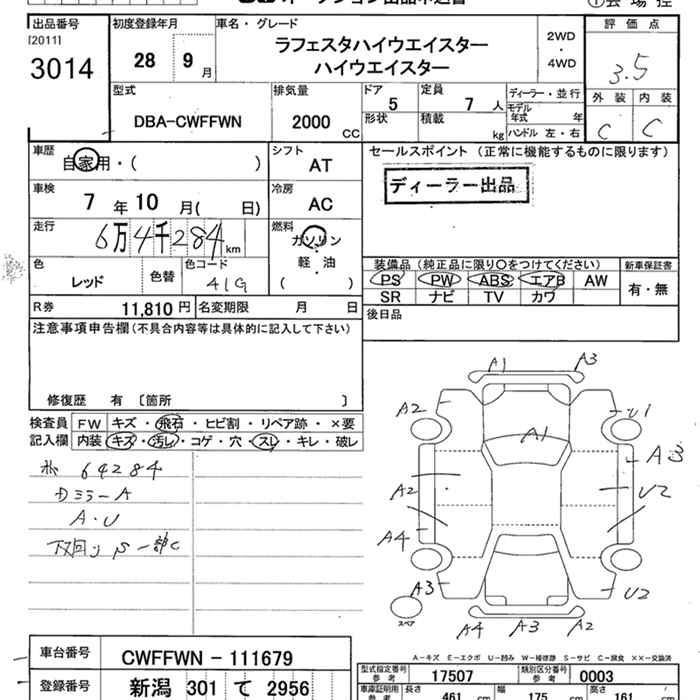 出品番号 初度登録年月 車名・グレード 評価点
[2011]
3014
28 9月
ラフェスタハイウエイスター
ハイウエイスター
2WD
・
4WD
3.5
外装 内装
C C
型式 排気量 ドア 定員 ディーラー・並行
DBA-CWFFWN 2000 CC 5 7 人
モデル年式 年
形状 積載 kg ハンドル 左・右
車歴 シフト セールスポイント (正常に機能するものに限ります)
自家用・( ) AT
ディーラー出品
車検 冷房
7 年 10 月( 日) AC
走行 燃料
6万4千284 km ガソリン
軽・油
( )
色 色替 色コード
レッド 41G
装備品 (純正品に限り○をつけてください) 新車保証書
PS PW ABS エアB AW 有・無
SR ナビ TV カワ
R券 11,810 円 名変期限 月 日
後日品
注意事項申告欄(不具合内容等は具体的に記入して下さい)
修復歴 有 〔箇所 〕
検査員 FW キズ・飛石・ヒビ割・リペア跡・×要
記入欄 内装 キズ・汚レ・コゲ・穴・スレ・キレ・破レ
64284
Dミラー A
A・U
下回り S 一部C
A1 A3
A2 U1
A1
A3
A2 U2
A4
A3 U2
スペア
A4 A3 A2
A-キズ E-エクボ U-凹み W-補修跡 S-サビ C-腐食 ××-交換済
車台番号 CWFFWN-111679
登録番号 新潟 301 て 2956
型式指定番号 参考 17507 類別区分番号 参考 0003
車庫証明用 参考 長さ 461 cm 幅 175 cm 高さ 161 cm